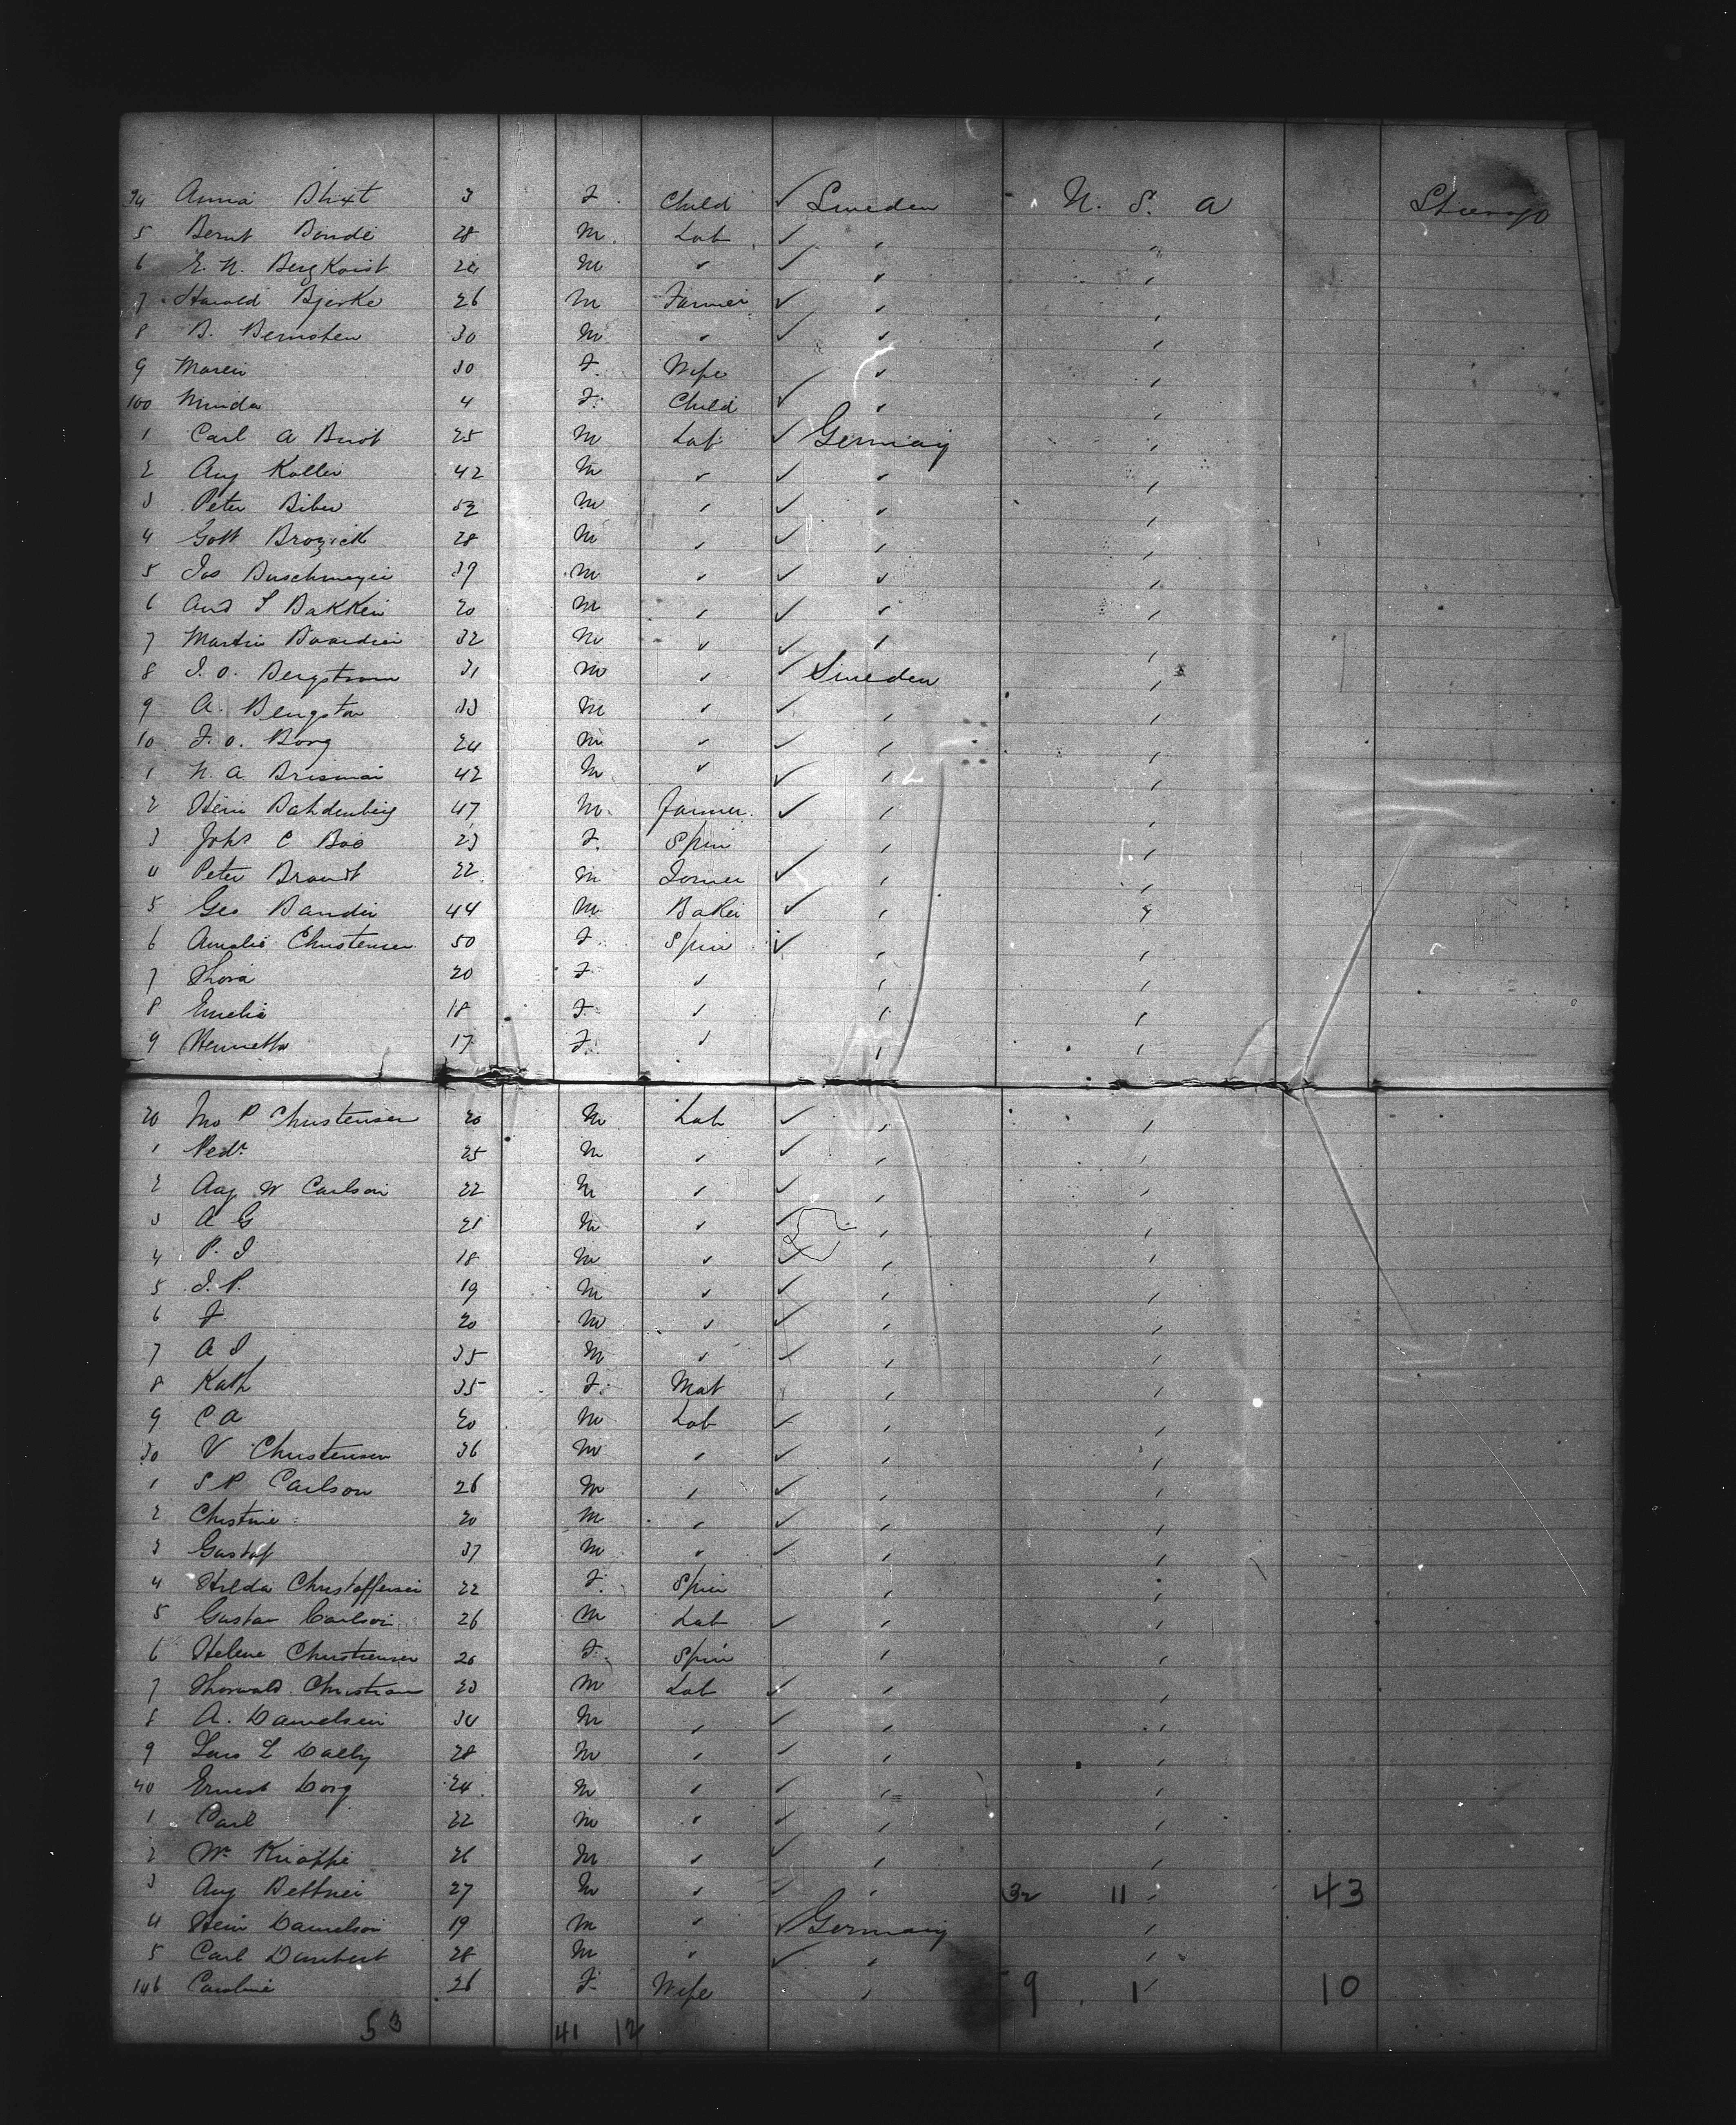 94 Anna Blixt 3 F. Child ✓ Sweden U. S. A Steerage
5 Bernt Bonde 28 M. Lab ✓ "
6 E. N. Bergkvist 24 M " ✓ "
7 Harold Bjerke 26 M Farmer ✓ "
8 B. Bernsten 30 M " ✓ "
9 Maren 30 F. Wife "
100 Minda 4 F. Child ✓ "
1 Carl A 25 M Lab ✓ Germany
2 Aug Koller 42 M " ✓ "
3 Peter Biber 52 M " ✓ "
4 Gott 28 M " ✓ "
5 Jos Buschmeyer 39 M " ✓ "
6 And S Bakken 20 M " ✓ "
7 Martin 32 M " ✓ "
8 J. O. Bergstrom 31 M " ✓ Sweden
9 A. Bengston 33 M " ✓ "
10 F. O. Borg 24 M " ✓ "
1 N. A. 42 M " ✓ "
2 Hein 47 M Farmer ✓ "
3 Johs C Boo 23 F. Spin "
4 Peter Brandt 22 M Joiner ✓ "
5 Geo 44 M Baker ✓ "
6 Amalie Christensen 50 F. Spin ✓ "
7 Thora 20 F " "
8 Emelie 18 F " "
9 Henrietta 17 F. " "
20 P Christensen 20 M Lab ✓ "
1 Pedr 25 M " ✓ "
2 Aug W Carlson 22 M " ✓ "
3 A G 21 M " ✓ "
4 P. J 18 M " ✓ "
5 J. P. 19 M " ✓ "
6 F 20 M " ✓ "
7 A J 35 M " ✓ "
8 Kath 35 F. Mat "
9 C A 20 M Lab ✓ "
30 V Christensen 36 M " ✓ "
1 S P Carlson 26 M " ✓ "
2 Christine 20 M " ✓ "
3 Gustaf 37 M " ✓ "
4 Hilda Christoffersen 22 F. Spin "
5 Gustav Carlson 26 M Lab ✓ "
6 Helene Christensen 26 F. Spin "
7 Thorwald Christian 23 M Lab ✓ "
8 A. Danielsen 34 M " ✓ "
9 Lars L Dalby 28 M " ✓ "
40 Ernest Dorg 24 M " ✓ "
1 Carl 22 M " ✓ "
2 Wm 26 M " ✓ "
3 Aug 27 M " ✓ " 32 11 43
4 Hein Danielson 19 M " ✓ Germany
5 Carl 28 M " ✓ "
146 Caroline 26 F. Wife " 9 1 10
53 41 12